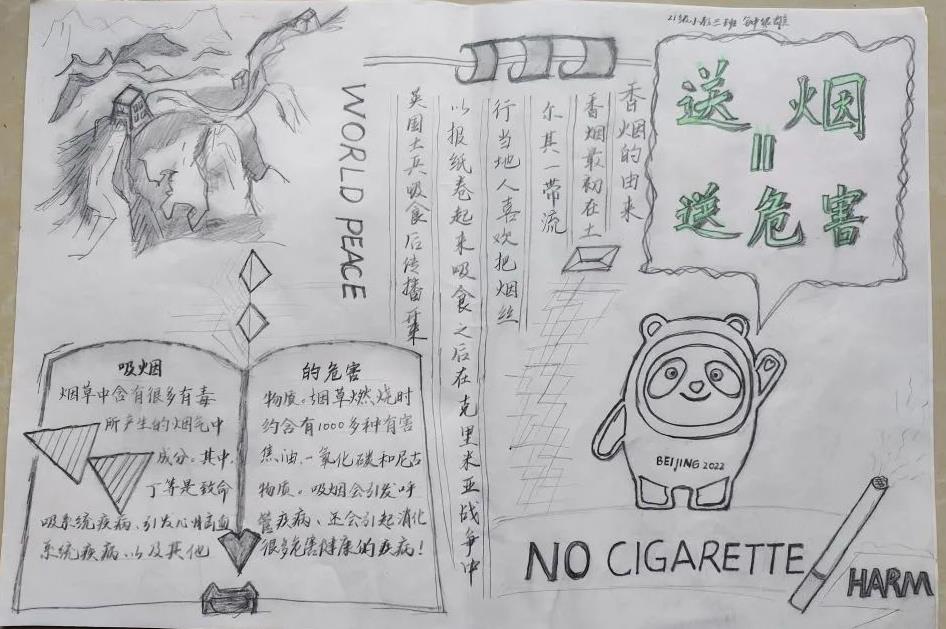 21级
三班
送烟
=
送危害
香烟的由来
香烟最初在土
尔其一带流
行当地人喜欢把烟丝
以报纸卷起来吸食之后在克里米亚战争中
英国士兵吸食后传播
WORLD PEACE
吸烟 的危害
烟草中含有很多有毒 物质。烟草燃烧时
所产生的烟气中 约含有1000多种有害
成分。其中, 焦油、一氧化碳和尼古
丁等是致命 物质。吸烟会引发呼
吸系统疾病、引发心脑血 管疾病、还会引起消化
系统疾病、以及其他 很多危害健康的疾病!
BEIJING 2022
NO CIGARETTE
HARM